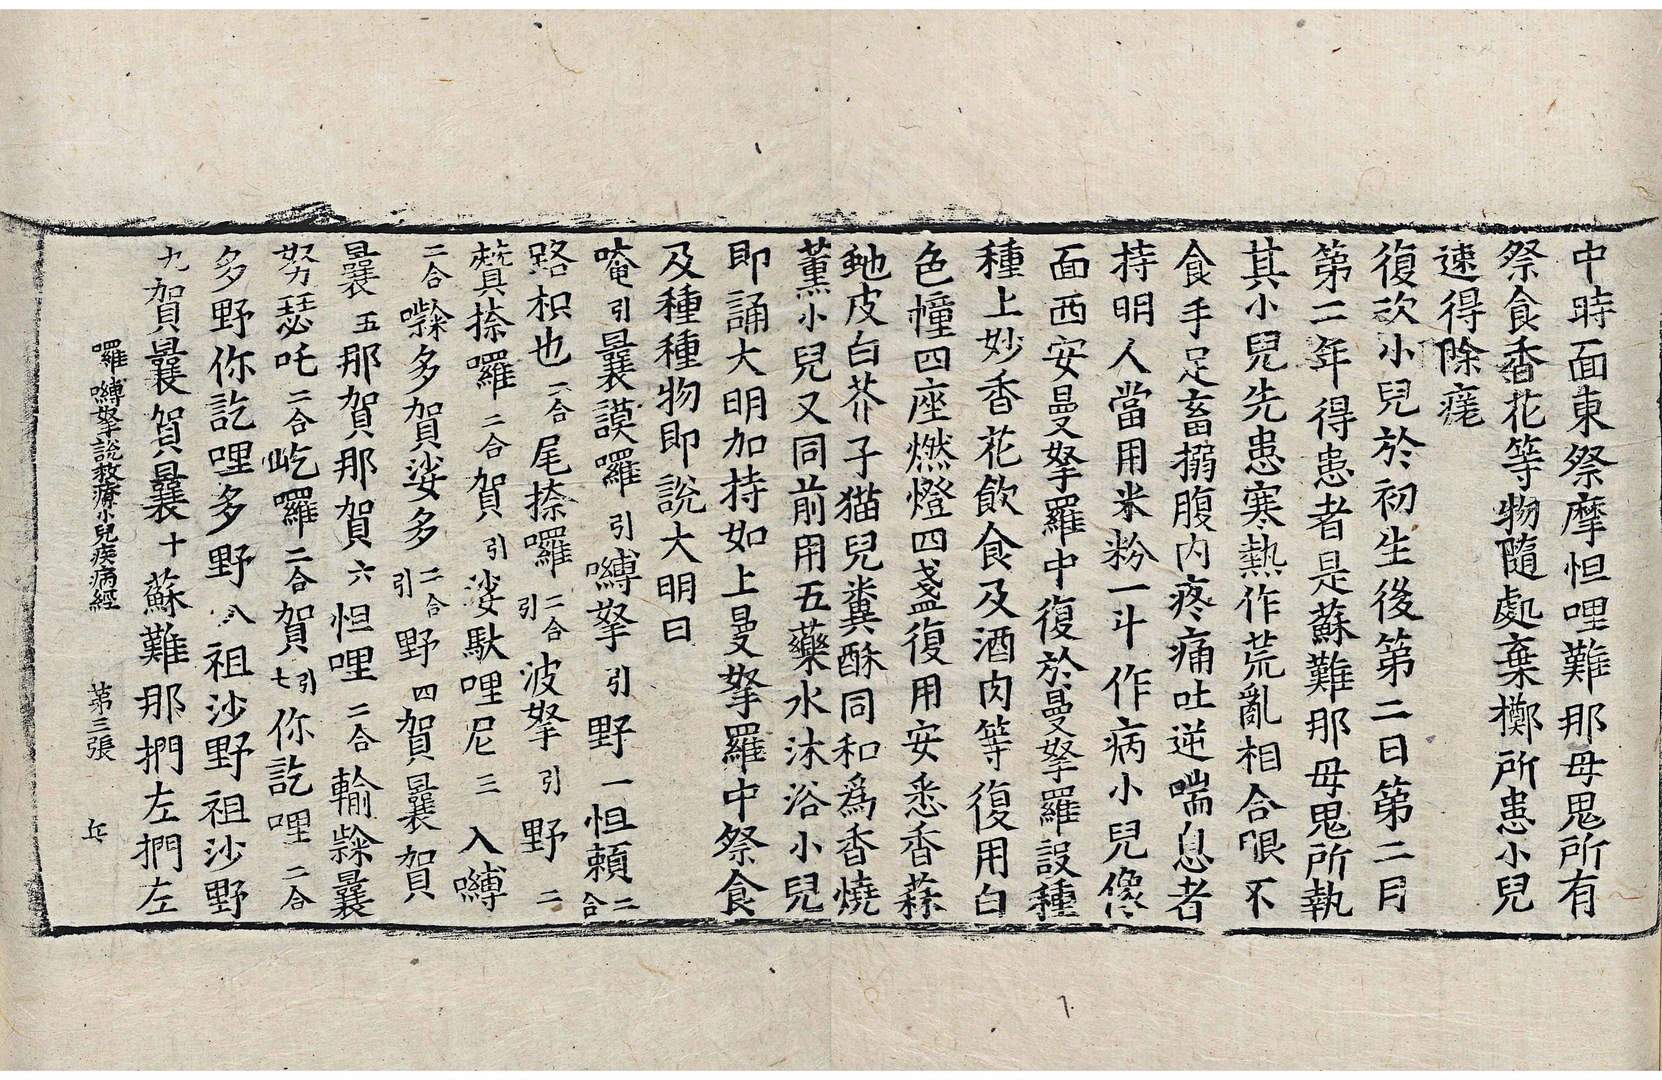 中時面東祭摩怛哩難那母鬼所有
祭食香花等物隨處棄擲所患小兒
速得除瘥
復次小兒於初生後第二日第二月
第二年得患者是蘇難那母鬼所執
其小兒先患寒熱作荒亂相合眼不
食手足畜搦腹内疼痛吐逆喘息者
持明人當用米粉一斗作病小兒像
面西安曼拏羅中復於曼拏羅設種
種上妙香花飲食及酒肉等復用白
色幢四座燃燈四盞復用安悉香蒜
虵皮白芥子猫兒糞酥同和爲香燒
薰小兒又同前用五藥水沐浴小兒
即誦大明加持如上曼拏羅中祭食
及種種物即說大明曰
唵引曩謨囉引嚩拏引野一怛頼二合
路枳也二合尾捺囉二合引波拏引野二
贊捺囉二合賀引娑馱哩尼三入嚩
二合囉多賀娑多二合引野四賀曩賀
曩五那賀那賀六怛哩二合輸隸曩
努瑟吒二合屹囉二合賀引七你訖哩二合
多野你訖哩多野八祖沙野祖沙野
九賀曩賀曩十蘇難那捫左捫左
囉嚩拏說救療小兒疾病經 第三張 兵